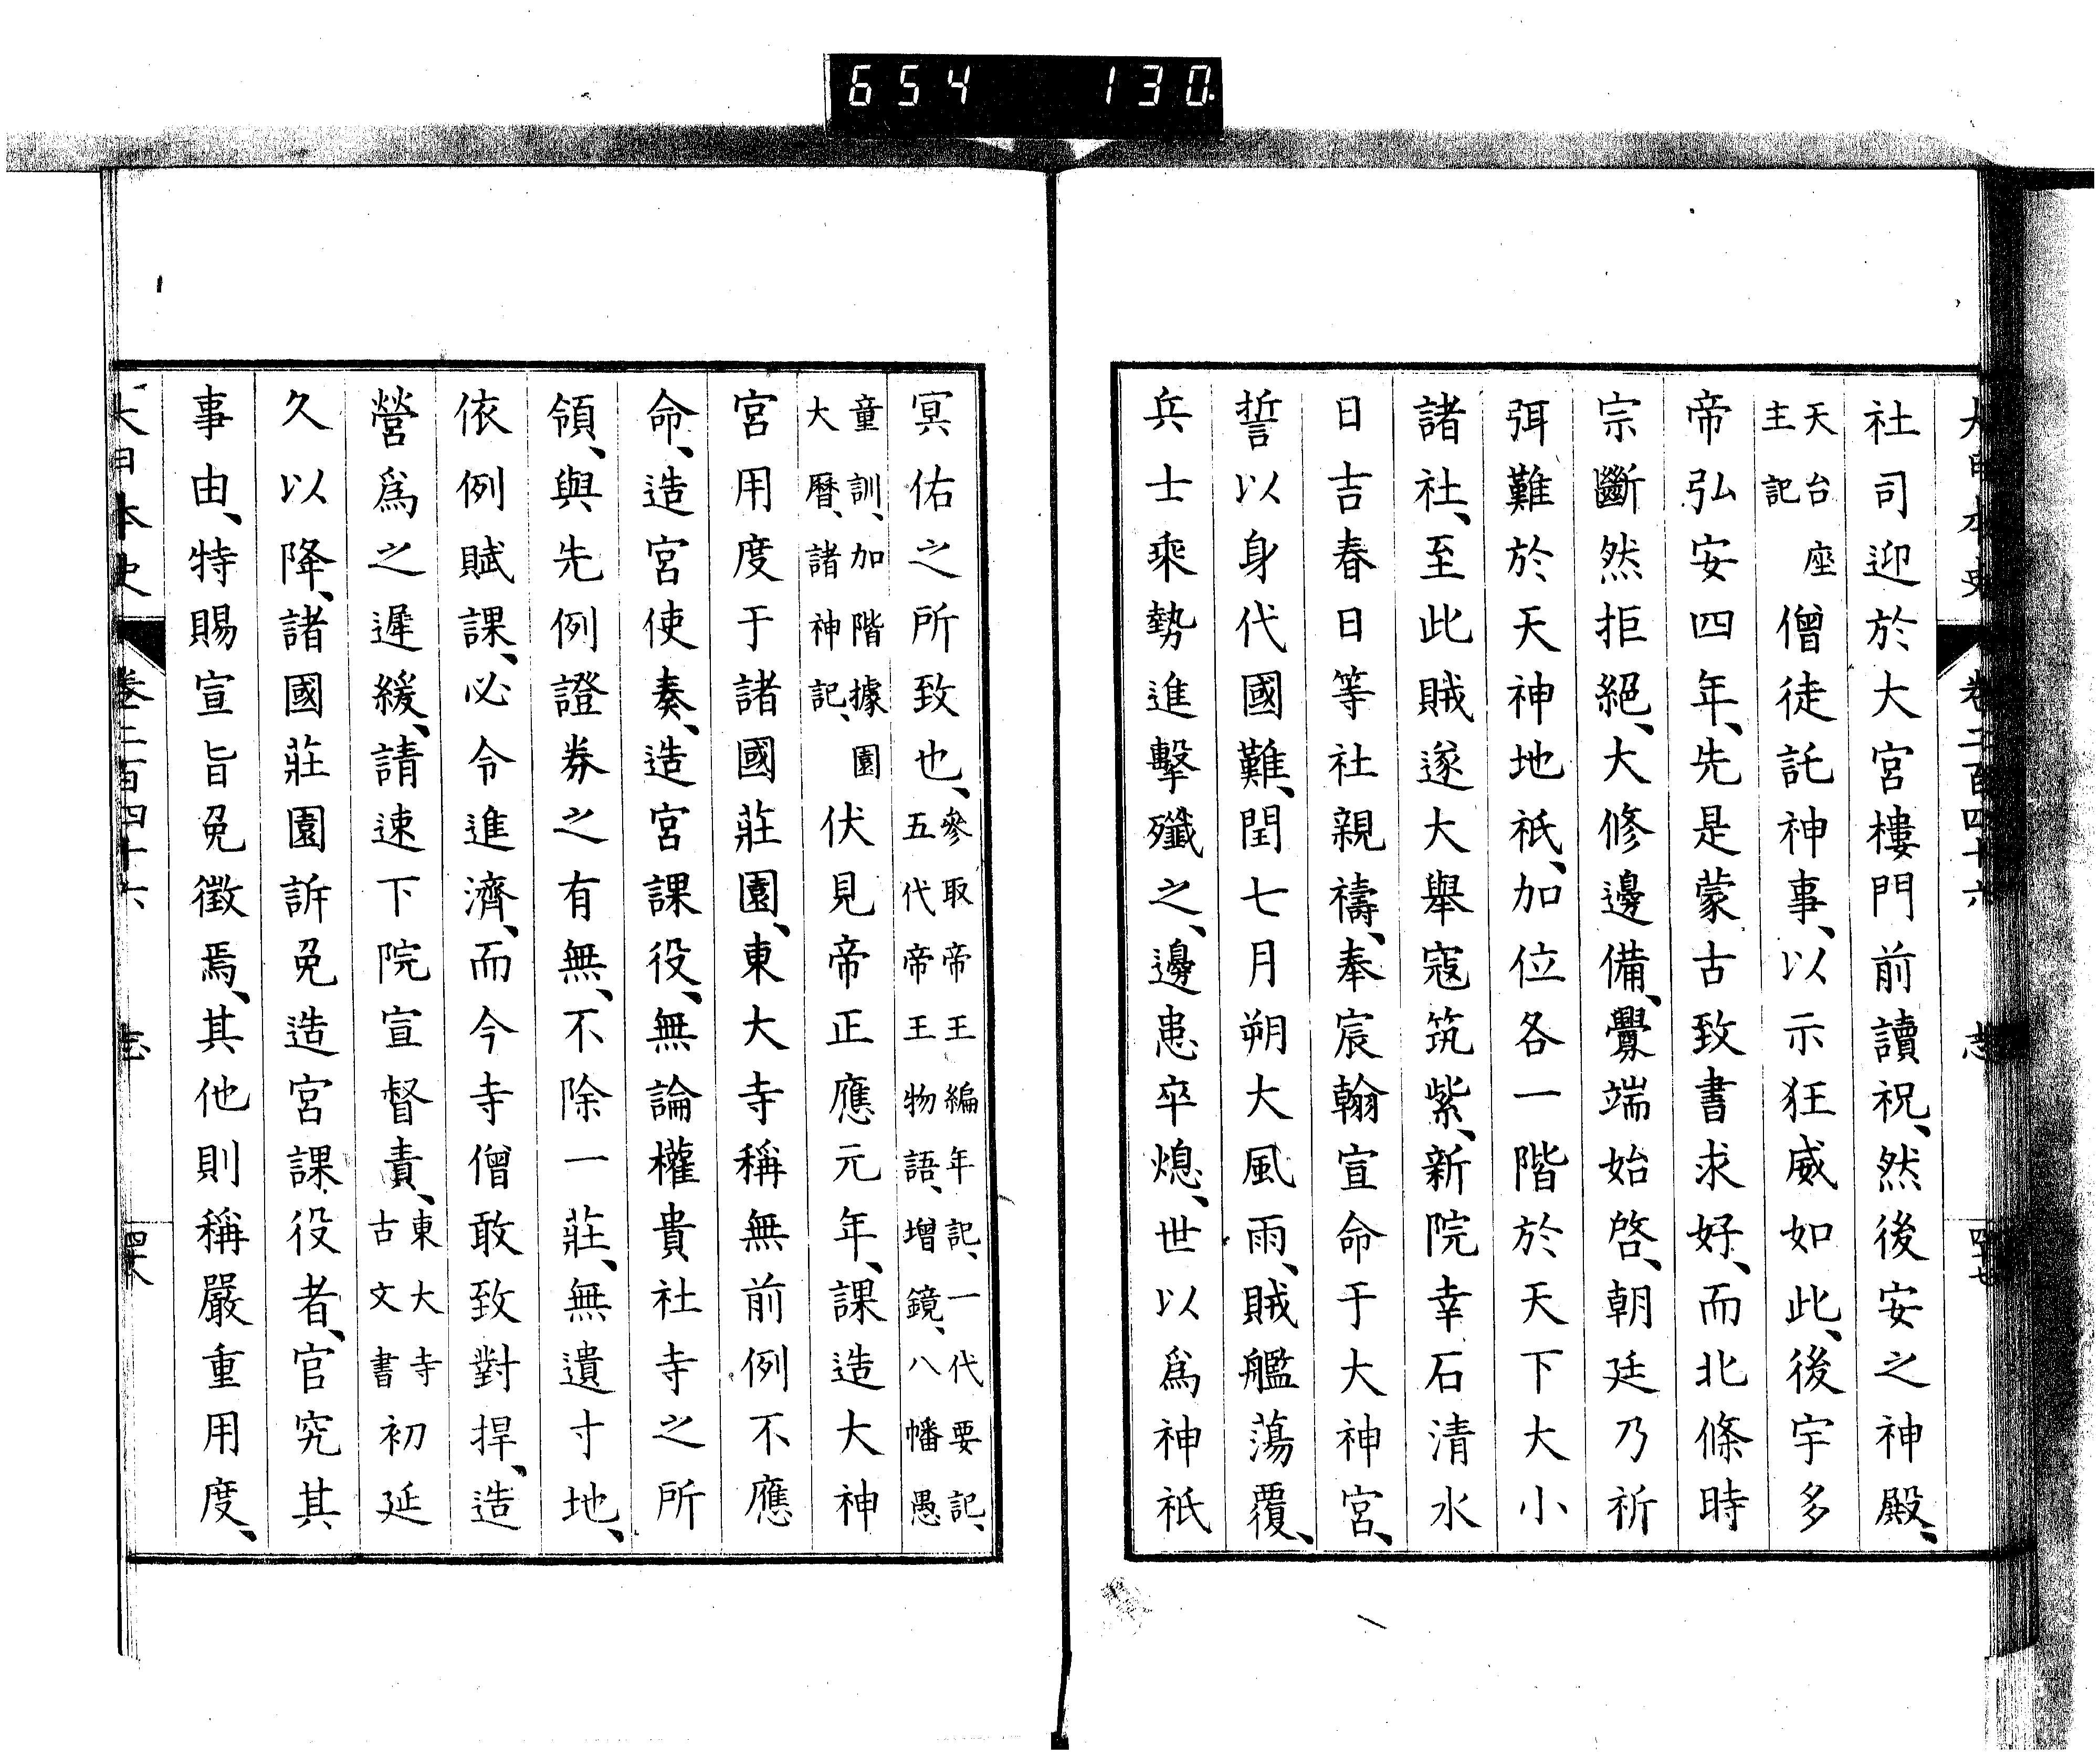 654 130
大日本史 卷二百四十六 志 四十七
社司迎於大宮樓門前讀祝、然後安之神殿、
天台座主記僧徒託神事、以示狂威如此、後宇多
帝弘安四年、先是蒙古致書求好、而北條時
宗斷然拒絕、大修邊備、釁端始啓、朝廷乃祈
弭難於天神地祇、加位各一階於天下大小
諸社、至此賊遂大舉寇筑紫、新院幸石清水
日吉春日等社親禱、奉宸翰宣命于大神宮、
誓以身代國難、閏七月朔大風雨、賊艦蕩覆、
兵士乘勢進擊殲之、邊患卒熄、世以爲神祇
冥佑之所致也、參取帝王編年記、一代要記、五代帝王物語、增鏡、八幡愚
童訓、加階據園大曆、諸神記、伏見帝正應元年、課造大神
宮用度于諸國莊園、東大寺稱無前例不應
命、造宮使奏、造宮課役、無論權貴社寺之所
領、與先例證券之有無、不除一莊、無遺寸地、
依例賦課、必令進濟、而今寺僧敢致對捍、造
營爲之遲緩、請速下院宣督責、東大寺古文書初延
久以降、諸國莊園訴免造宮課役者、官究其
事由、特賜宣旨免徵焉、其他則稱嚴重用度、
大日本史 卷二百四十六 志 四十八